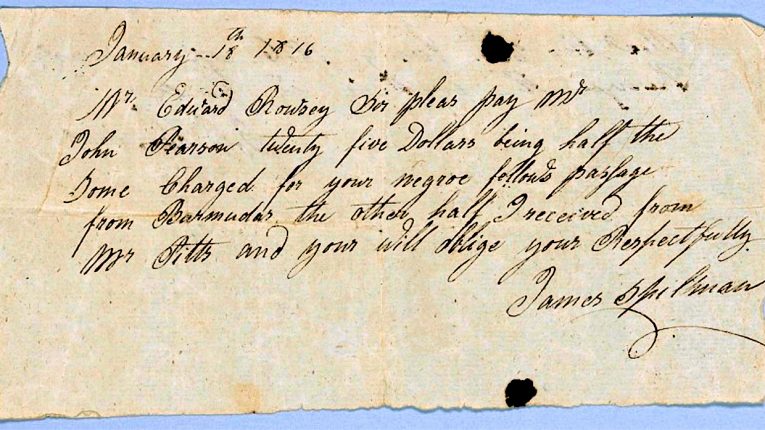 January 18th 1816
Mr Edward Rowsey Sir pleas pay Mr
John Pearson twenty five Dollars being half the
Some Charged for your negroe fellows passage
from Barmudas the other half I received from
Mr Pitts and your will oblige your Respectfully
James Spelman